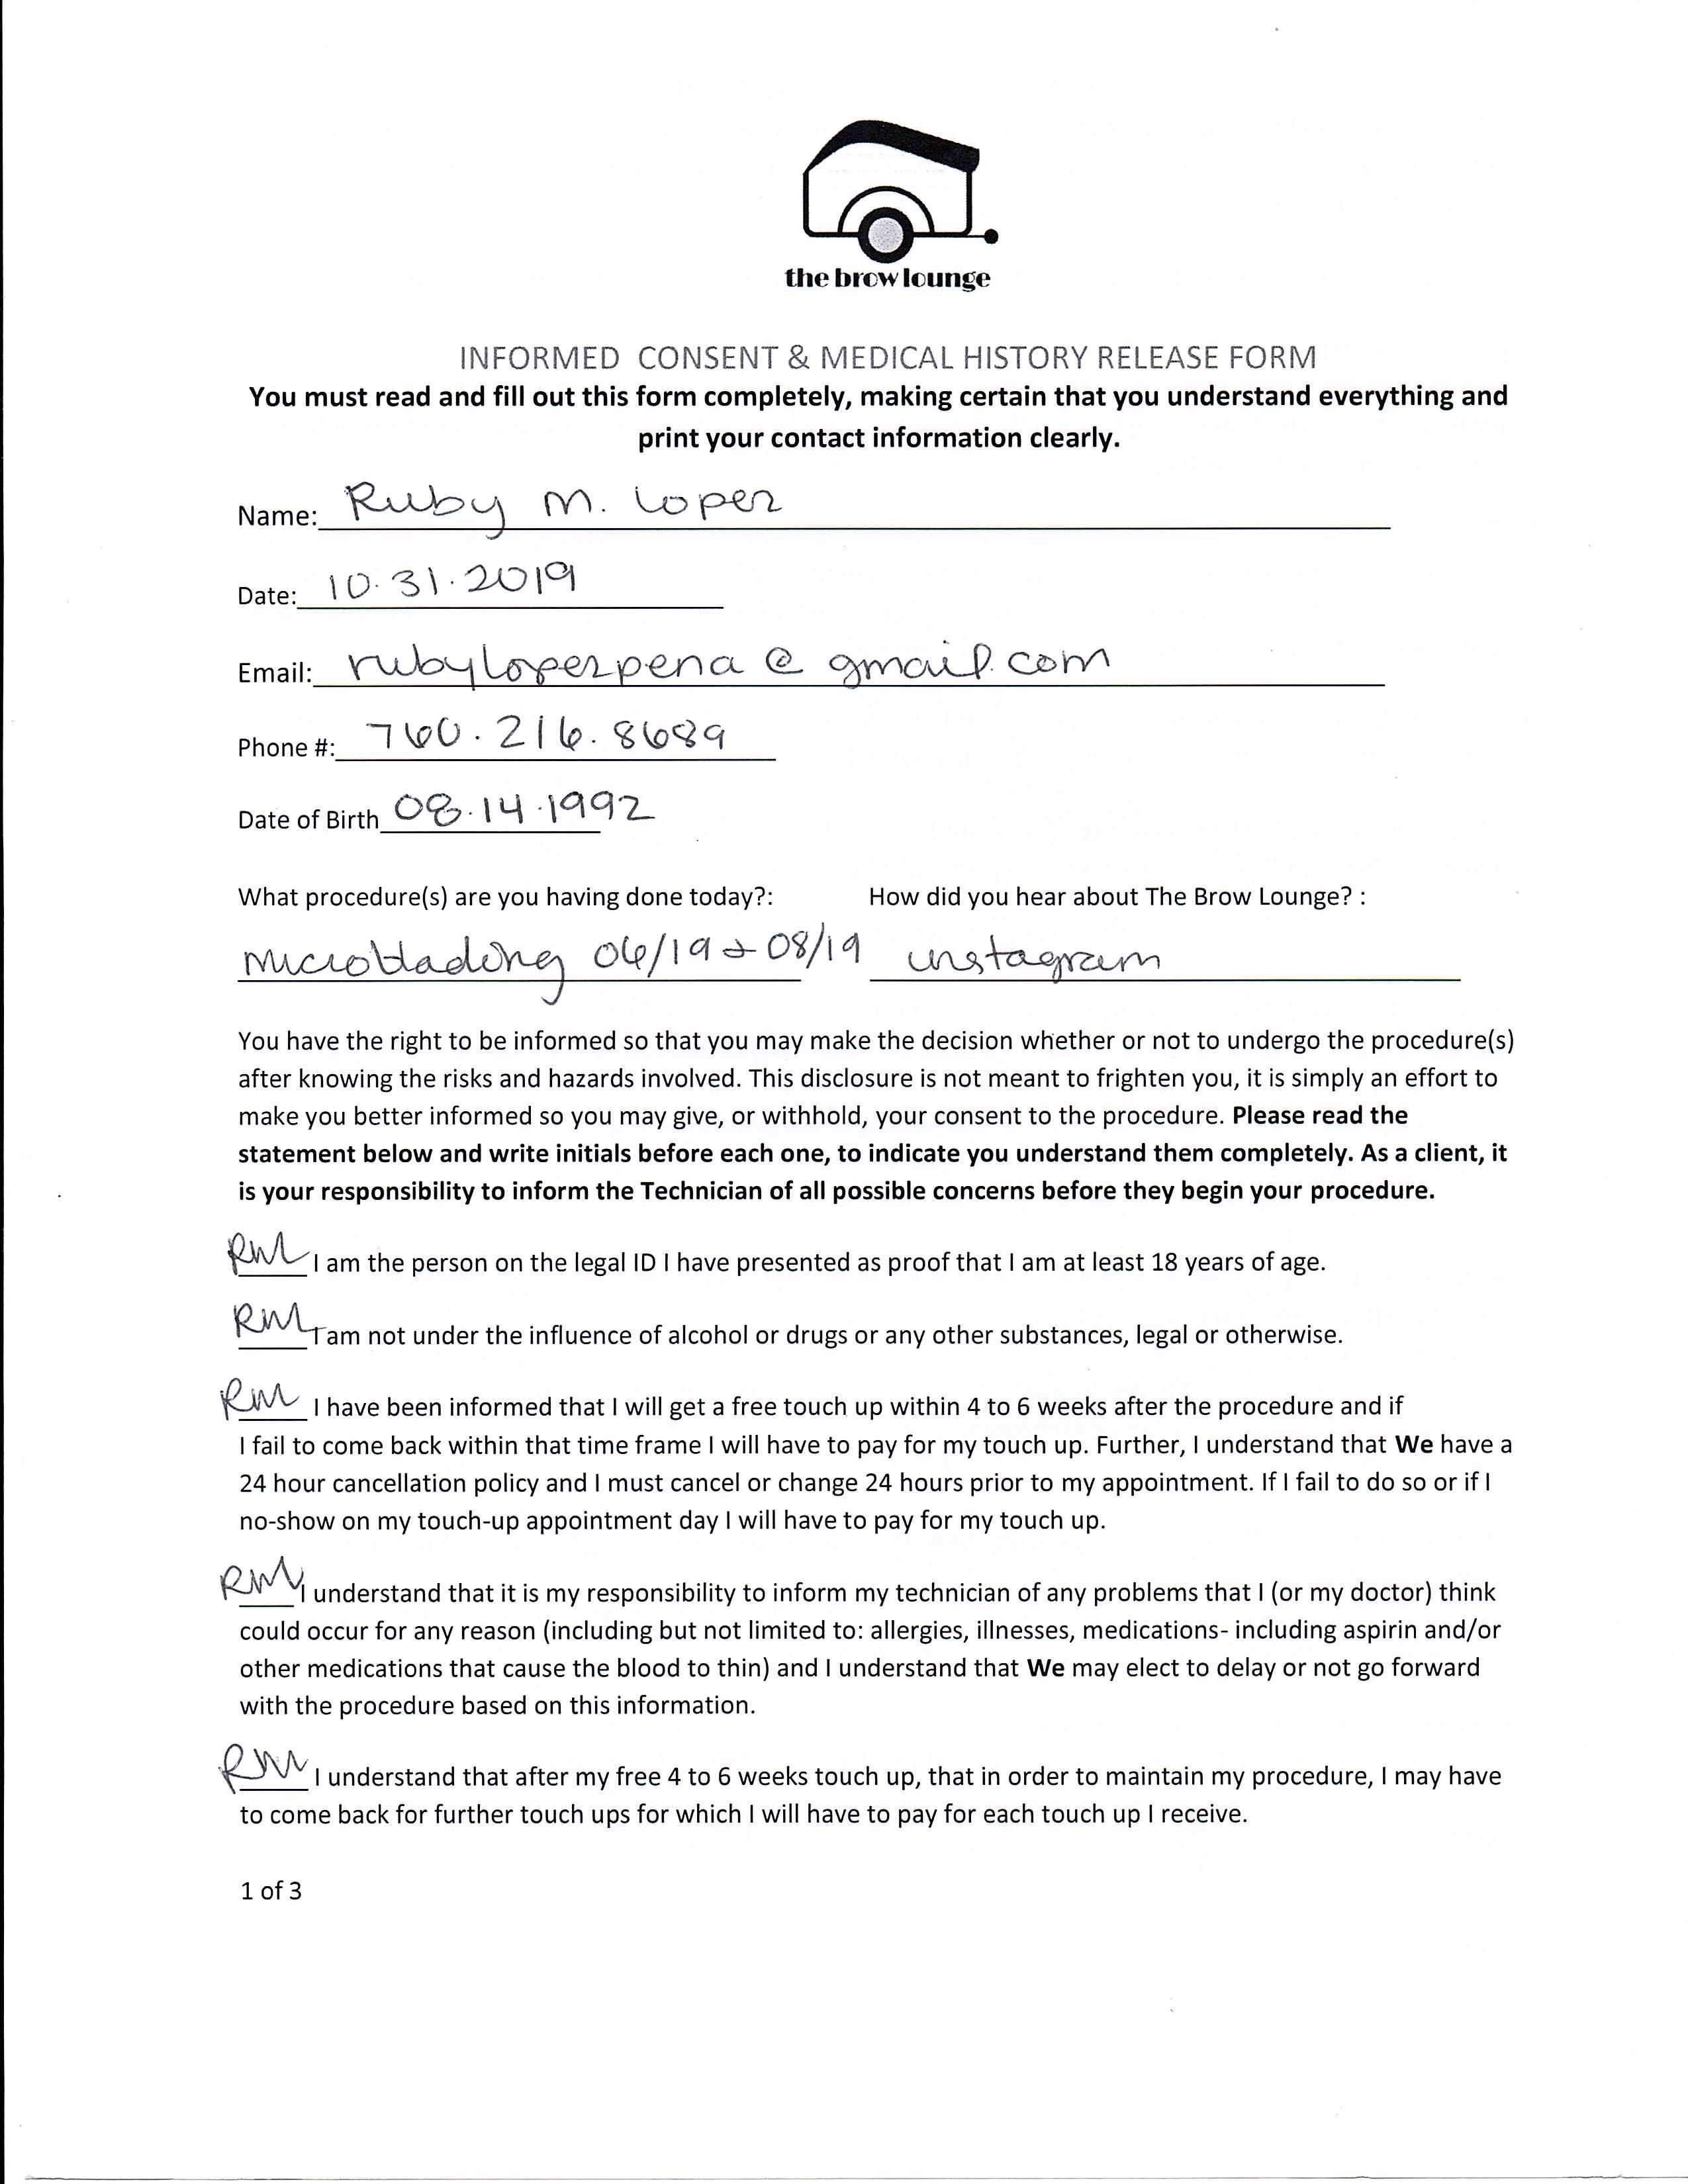 the brow lounge
INFORMED CONSENT & MEDICAL HISTORY RELEASE FORM
You must read and fill out this form completely, making certain that you understand everything and
print your contact information clearly.
Name: Ruby M. Lopez
Date: 10.31.2019
Email: rubylopezpena@gmail.com
Phone #: 760.216.8689
Date of Birth 08.14.1992
What procedure(s) are you having done today?: How did you hear about The Brow Lounge? :
Microblading 06/19 + 08/19 instagram
You have the right to be informed so that you may make the decision whether or not to undergo the procedure(s)
after knowing the risks and hazards involved. This disclosure is not meant to frighten you, it is simply an effort to
make you better informed so you may give, or withhold, your consent to the procedure. Please read the
statement below and write initials before each one, to indicate you understand them completely. As a client, it
is your responsibility to inform the Technician of all possible concerns before they begin your procedure.
RML I am the person on the legal ID I have presented as proof that I am at least 18 years of age.
RML I am not under the influence of alcohol or drugs or any other substances, legal or otherwise.
RML I have been informed that I will get a free touch up within 4 to 6 weeks after the procedure and if
I fail to come back within that time frame I will have to pay for my touch up. Further, I understand that We have a
24 hour cancellation policy and I must cancel or change 24 hours prior to my appointment. If I fail to do so or if I
no-show on my touch-up appointment day I will have to pay for my touch up.
RML I understand that it is my responsibility to inform my technician of any problems that I (or my doctor) think
could occur for any reason (including but not limited to: allergies, illnesses, medications- including aspirin and/or
other medications that cause the blood to thin) and I understand that We may elect to delay or not go forward
with the procedure based on this information.
RML I understand that after my free 4 to 6 weeks touch up, that in order to maintain my procedure, I may have
to come back for further touch ups for which I will have to pay for each touch up I receive.
1 of 3